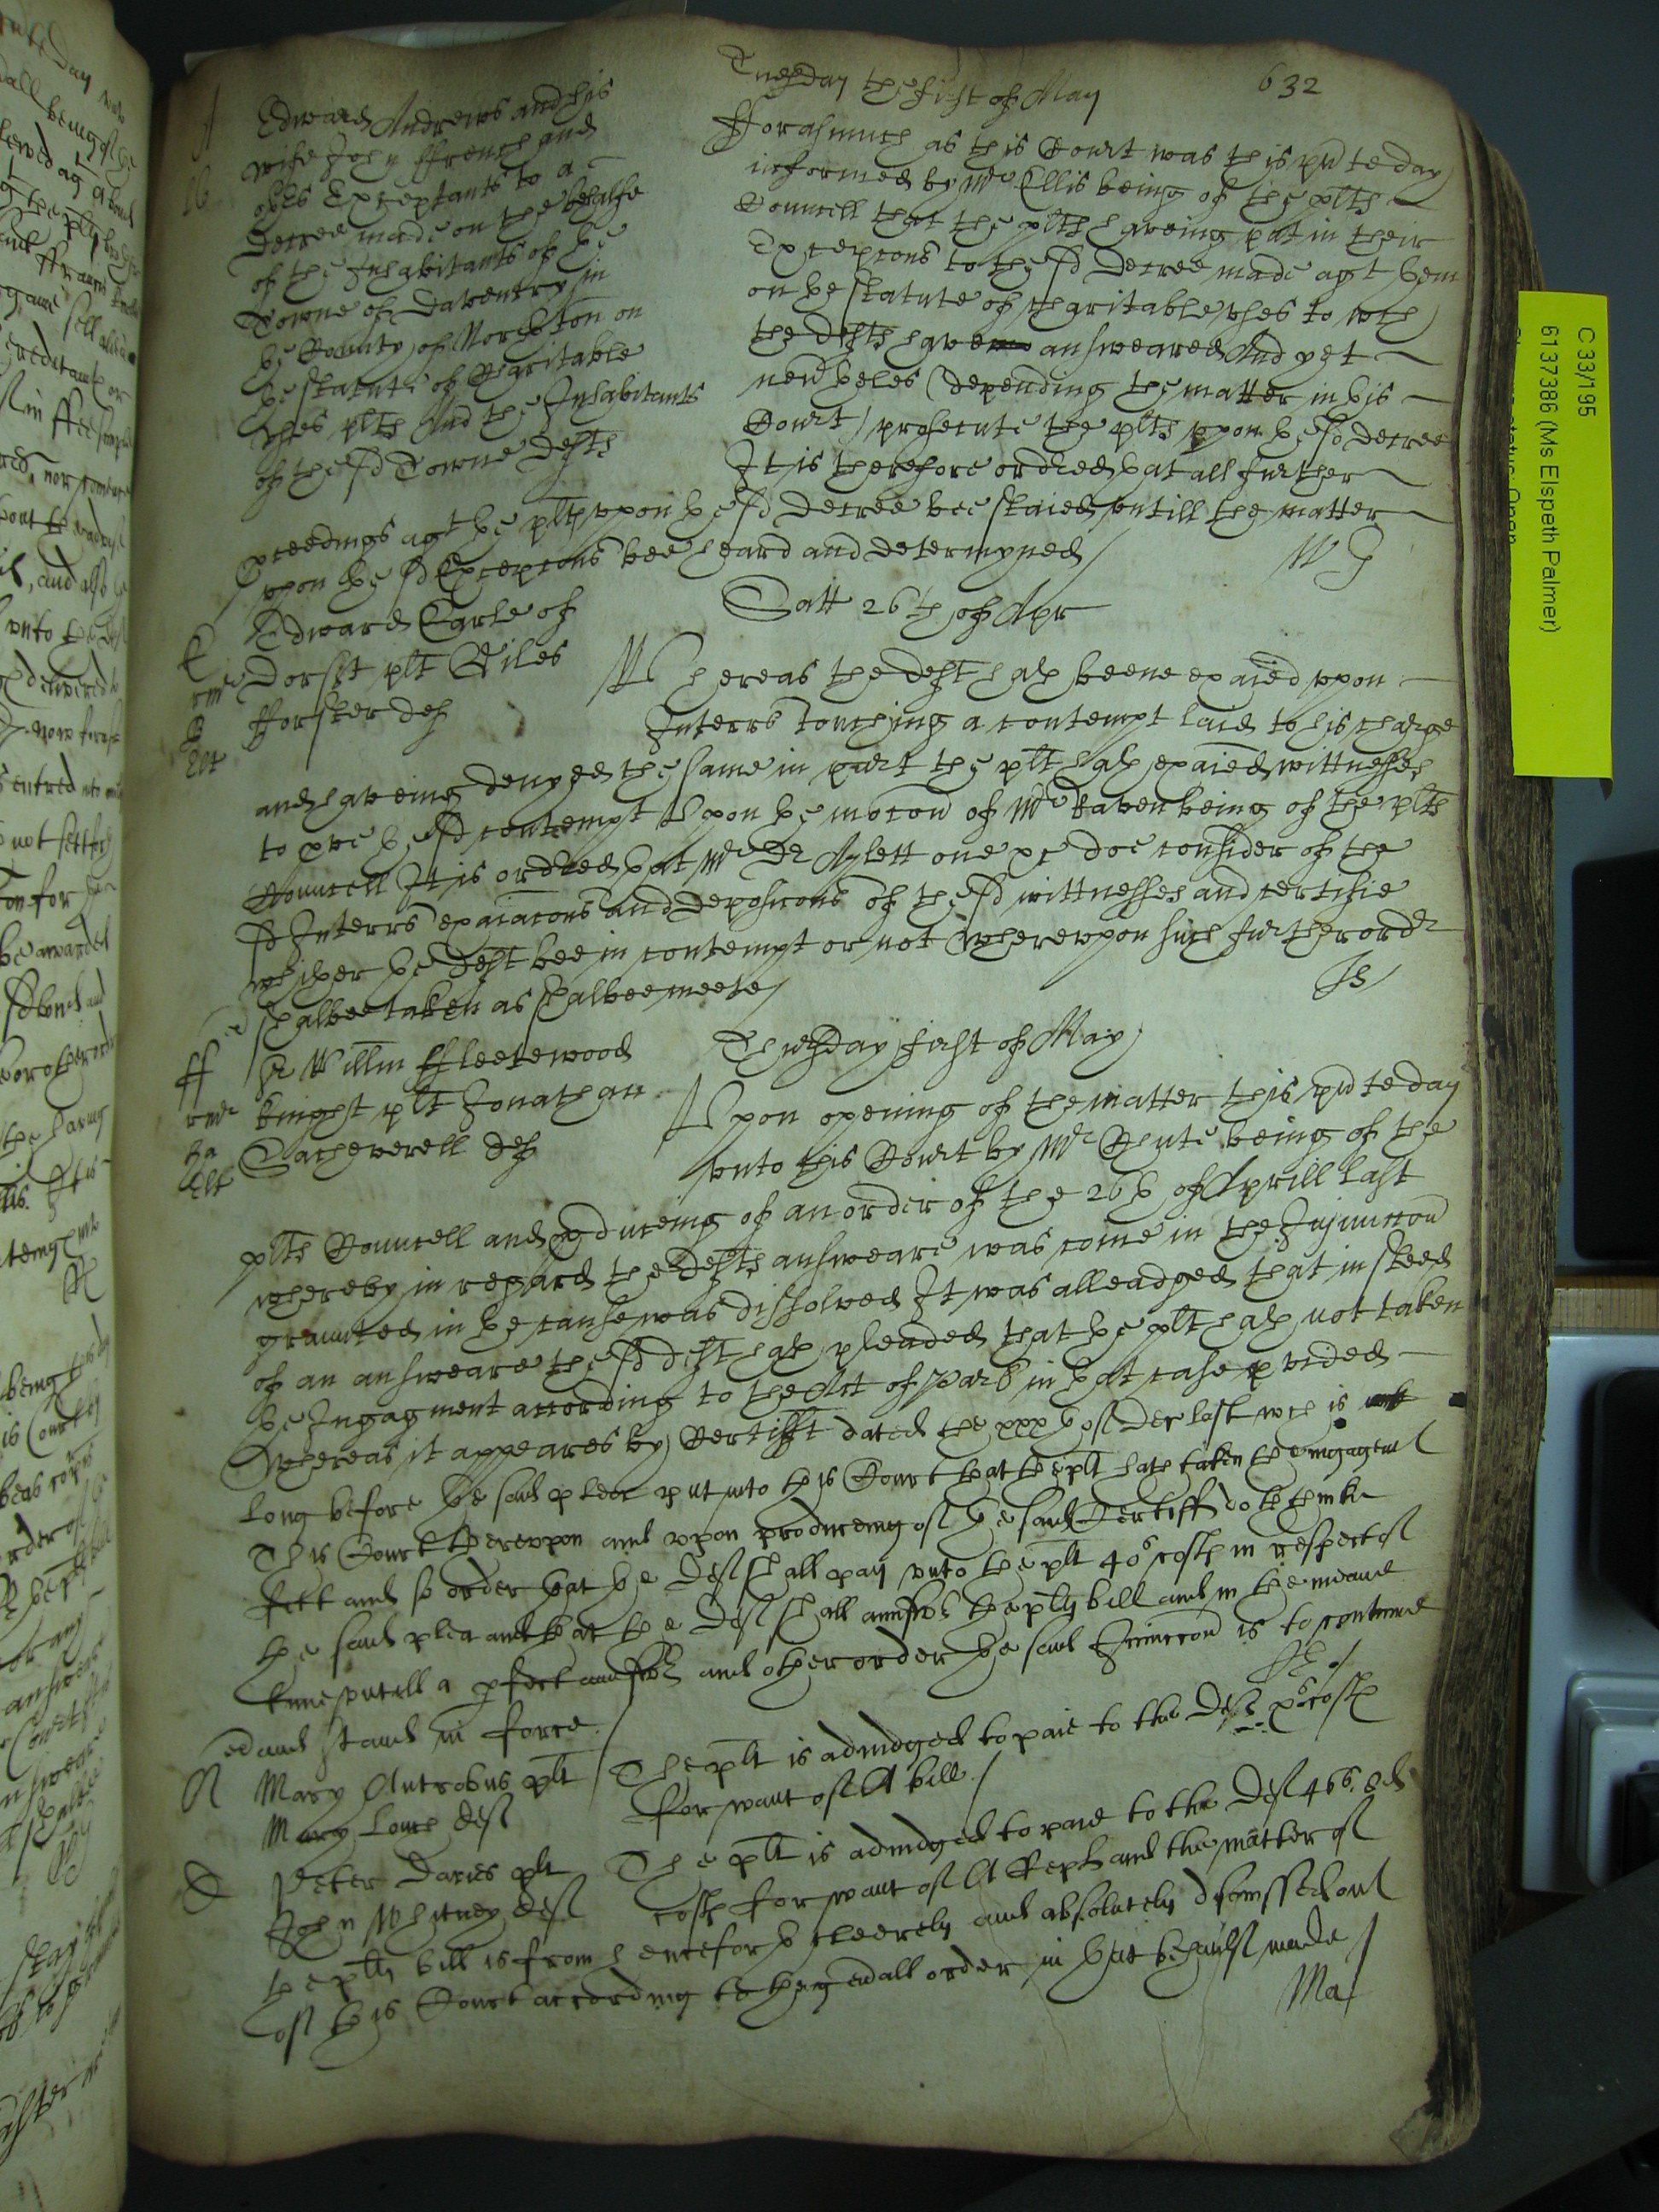 632
Tuesday the first of May
A
Edward Andrews and his
wife John ffrench and
oths Exceptants to a
decree made on the behalfe
of the Inhabitants of ye
Towne of Daventry in
ye County of Northton on
ye statute of Charitable
uses plts And the Inhabitants
of the sd Towne defts
fforasmuch as this Court was this pnte day
informed by Mr Ellis being of the plts
Councell that the plts haveing put in their
Excepcons to the sd decree made agt them
on ye statute of charitable uses to wch
the defts have answeared And yet
nevtheles (depending the matter in this
Court) prosecute the plts upon ye sd decree
It is therefore ordred yat all further
pceedings agt ye plts upon ye sd decree bee staied untill the matter
upon ye sd Excepcons bee heard and determyned /
W G
Satt 26th of Apr
E
Edward Earle of
Dorset plt Giles
fforster def
Whereas the deft hath beene exaied upon
Interrs touching a contempt laid to his charge
and haveing denyed the same in part the plt hath exaied wittnesses
to pve ye sd contempt Upon ye mocon of Mr Baven being of the plts
Councell It is ordred yat Mr Dr Aylett one &c doe consider of the
sd Interrs exaiacons and deposicons of the sd wittnesses and certifie
whether ye deft bee in contempt or not Whereupon such further ordr
shalbee taken as shalbee meete /
Is /
Thursday first of May
ff
Sr Willm ffleetewood
knight plt Jonathan
Sacheverell def
Upon opening of the matter this pnte day
unto this Court by Mr Chute being of the
plts Councell and pduceing of an order of the 26th of Aprill last
whereby in regard the defts answeare was come in the Injunccon
graunted in ye cause was dissolved It was alleadged that in steed
of an answeare the sd deft hath pleaded that ye plt hath not taken
ye Ingagment according to the Act of Parlt in that case pvided
Whereas it appeares by Certifft dated the xxxth of Decr last wch is
long before ye said plea put into this Court that the plt hath taken the engagemt
This Court thereupon and upon produceing of ye said Certiff doth thinke
fitt and so order that ye Def shall pay unto the plt 40s costs in respect of
the said plea and that the Def shall answer the plts bill and in the meane
time untill a pfect answer and other order ye said Injunccon is to continue
and stand in force /
JE /
A
Mary Antrobus plt
Mary Lowe Def
The plt is adiudged to paie to the Def xs costs
for want of A bill /
D
Peter Davies plt
John Whitney Def
The plt is adiudged to paie to the Def 46s 8d
costs for want of A Replr and the matter of
the plts bill is from henceforth cleerely and absolutely dismissed out
of this Court according to the gerall order in that behaulf made /
Ma /
C 33/195
61 37386 (Ms Elspeth Palmer)